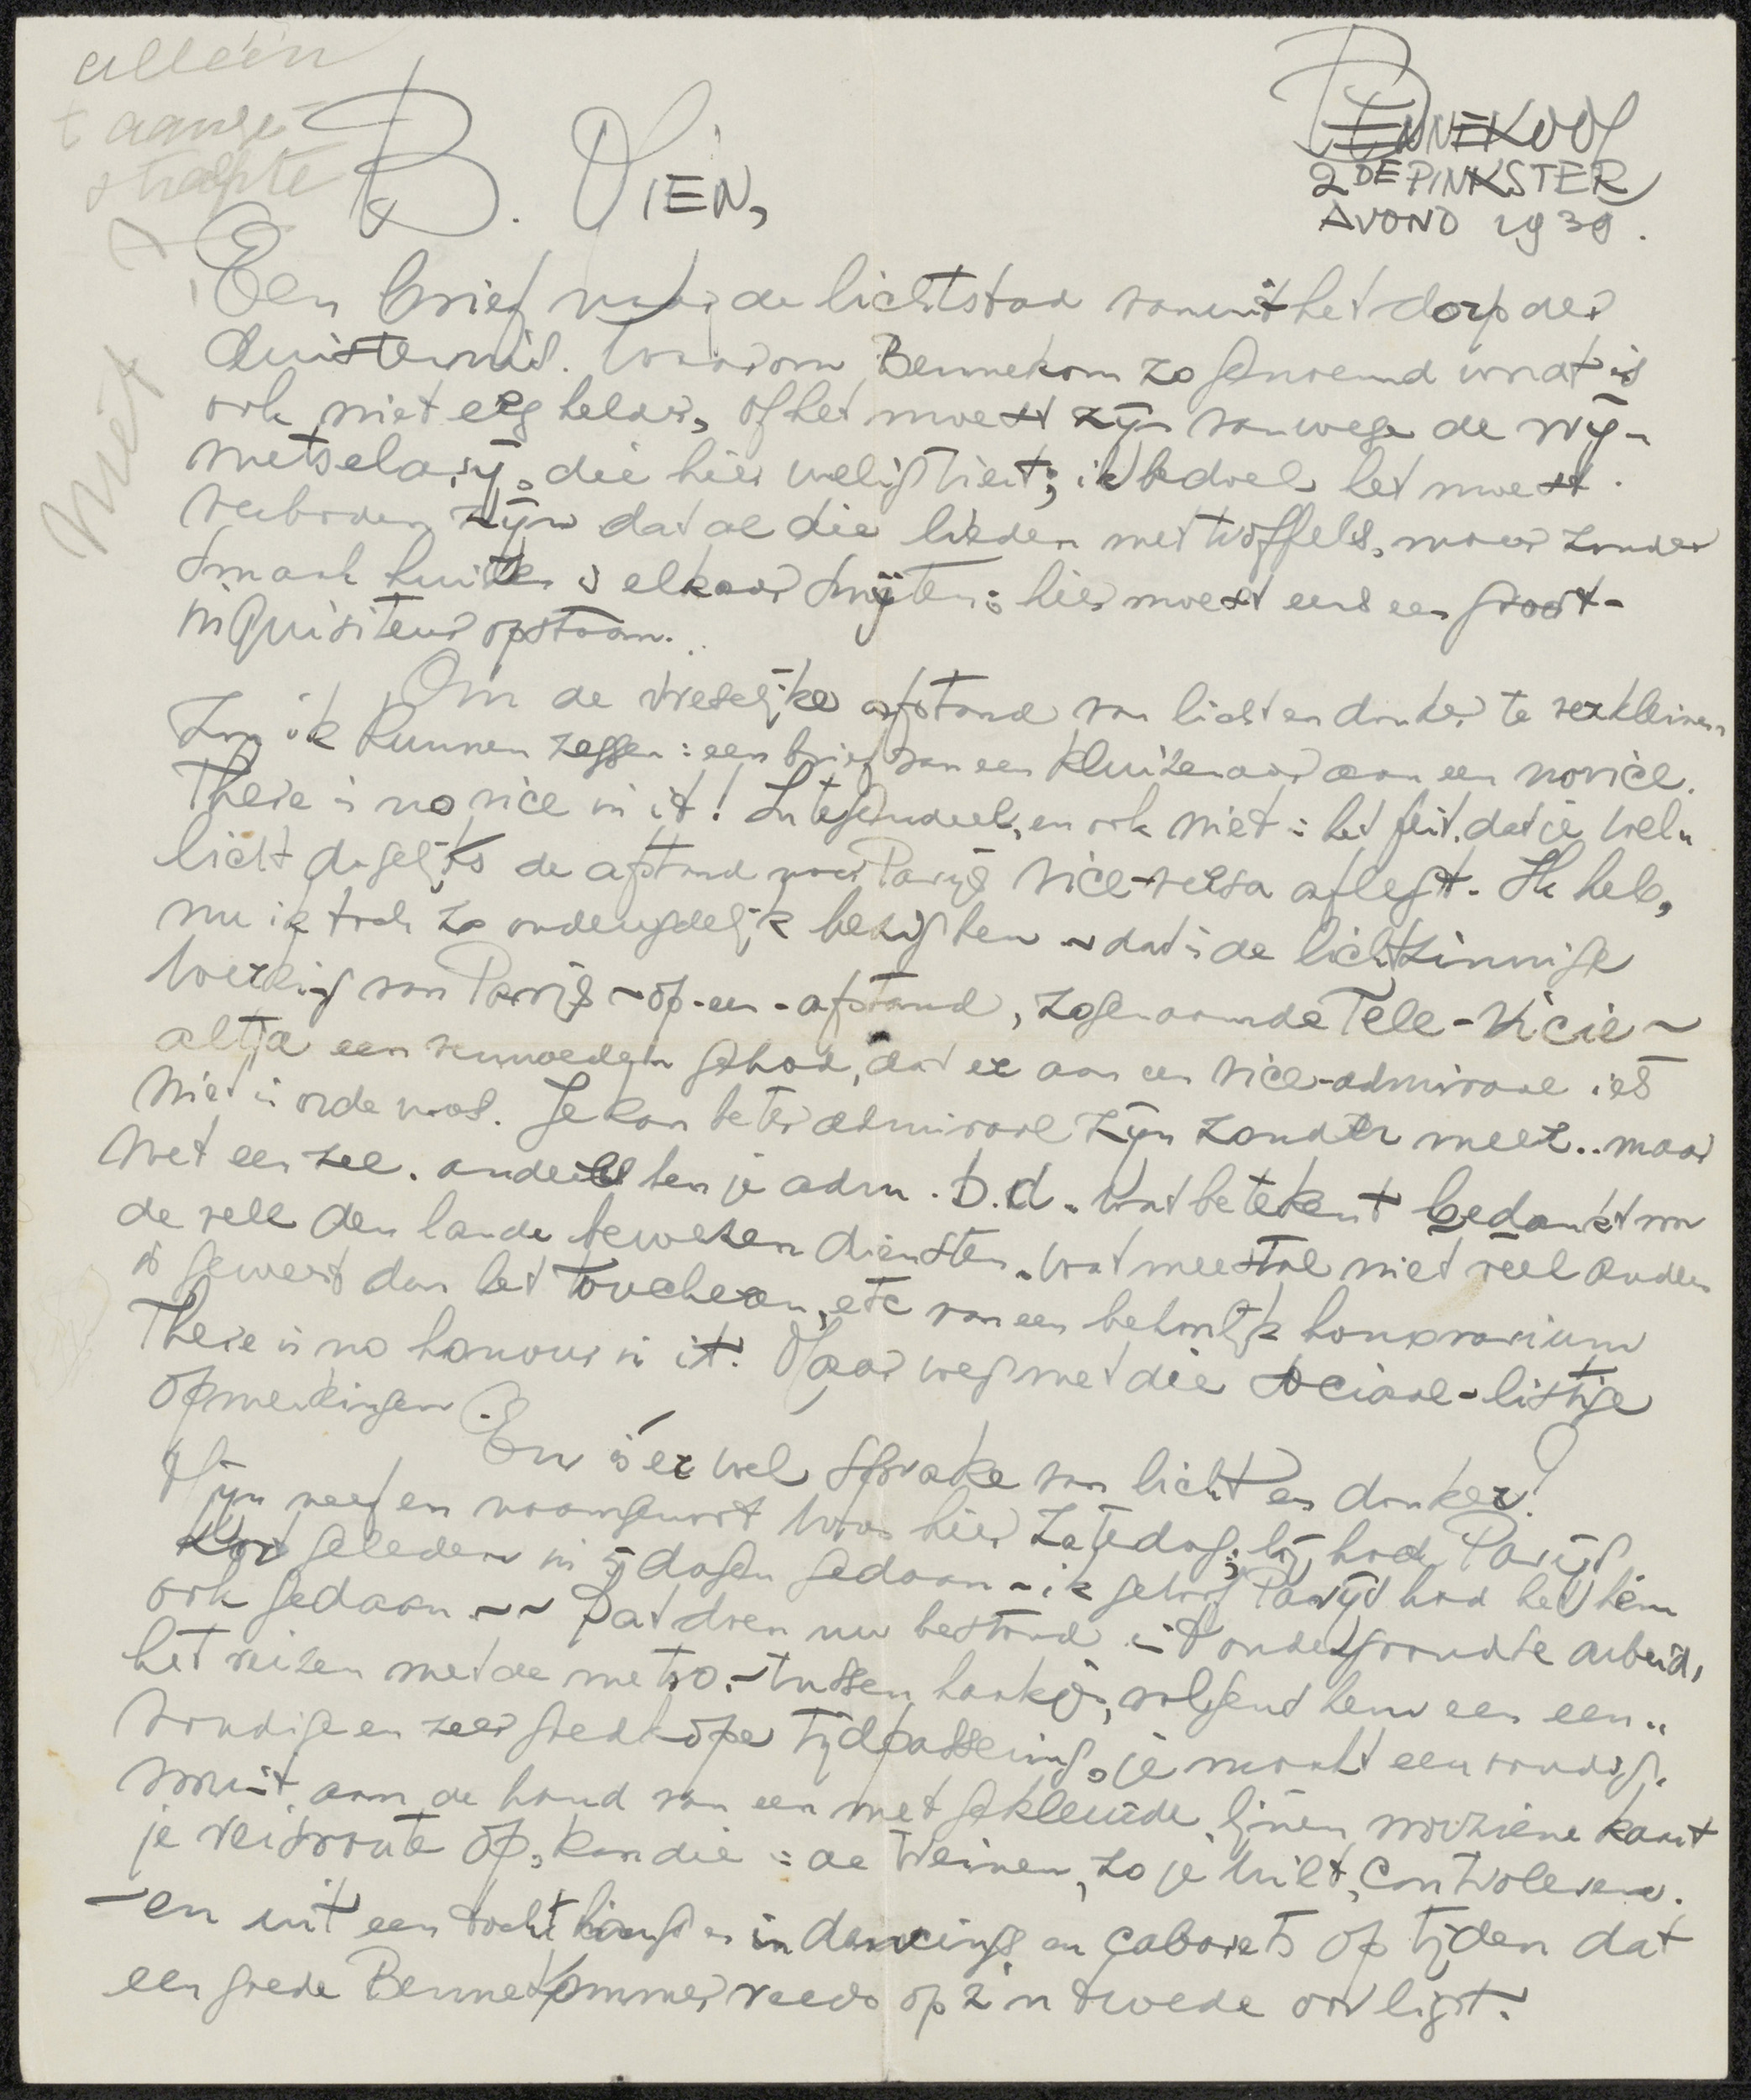 alléén
't aange
streepte
niet
BENNEKOM
2DE PINKSTER
AVOND 1939.
B. Dien,
Een brief naar de lichtstad vanuit het dorp der
duisternis. Waarom Bennekom zo genoemd wordt is
ook niet erg helder, of het moest zijn vanwege de vrij-
metselarij, die hier welig tiert; ik bedoel het moest
verboden zijn dat al die lieden met troffels, maar zonder
smaak huizen is elkaar smijten: hier moest eens een groot-
inquisiteur opstaan.
Om de vreselijke afstand van licht en donker te verkleinen
zou ik kunnen zeggen: een brief van een kluizenaar aan een novice.
There is no vice in it! Integendeel, en ook niet in het feit, dat je wel-
licht dagelijks de afstand naar Parijs vice-versa aflegt. Ik heb,
nu ik toch zo ondeugdelijk bezig ben ~ dat is de lichtzinnige
werking van Parijs ~ op-een-afstand, zogenaamde Tele-vicie ~
altijd een vermoeden gehad, dat er aan een vice-admiraal iets
niet in orde was. Je kan beter admiraal zijn zonder meer.. maar
met een zee. anders ben je adm. b.d. wat betekent bedankt voor
de vele den lande bewezen diensten, wat meestal niet veel anders
is geweest dan het toucheren, etc van een behoorlijk honorarium
There is no honour in it. Maar weg met die sociaal-listige
opmerkingen.
En is er wel sprake van licht en donker?
Mijn neef en naamgenoot was hier zaterdag; hij had Parijs
kort geleden in 5 dagen gedaan ~ ik geloof Parijs had het hem
ook gedaan ~~ Dat doen nu bestond uit ondergrondse arbeid,
het reizen met de metro, ~ tussen haakjes, volgens hem een een-
voudige en zeer goedkope tijdpassering, je maakt eenvoudig
vooruit aan de hand van een met gekleurde lijnen voorziene kaart
je reisroute op, kan die in de treinen, zo je wilt, controleren.
~ en uit een tocht langs en in dancings en cabarets op tijden dat
een goede Bennekommer reeds op z'n tweede oor ligt.